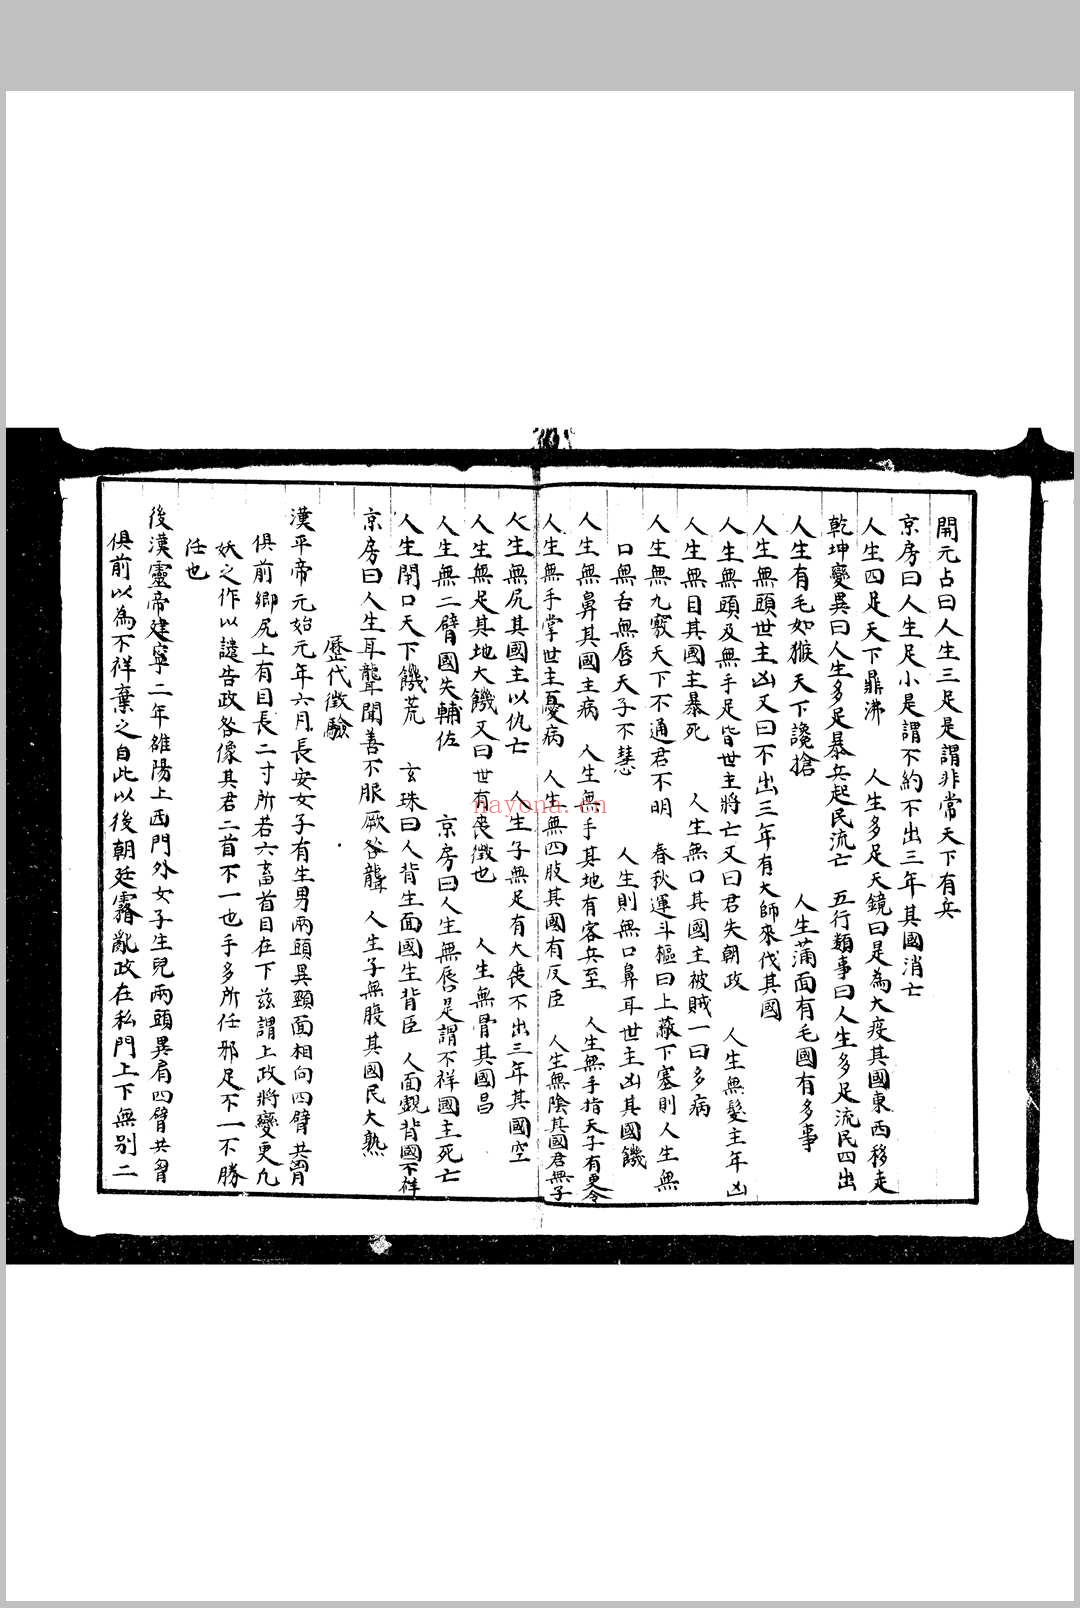 開元占曰人生三足是謂非常天下有兵
京房曰人生足小是謂不約不出三年其國消亡
人生四足天下鼎沸 人生多足天鏡曰是為大疫其國東西移走
乾坤變異曰人生多足暴兵起民流亡 五行類事曰人生多足流民四出
人生有毛如猴天下讒搶 人生蒲面有毛國有多事
人生無頭世主凶又曰不出三年有大師來伐其國
人生無頭及無手足皆世主將亡又曰君失朝政 人生無髮主年凶
人生無目其國主暴死 人生無口其國主被賊一曰多病
人生無九竅天下不通君不明 春秋運斗樞曰上蔽下塞則人生無
口無舌無唇天子不慧 人生則無口鼻耳世主凶其國饑
人生無鼻其國主病 人生無手其地有客兵至 人生無手指天子有更令
人生無手掌世主憂病 人生無四肢其國有反臣 人生無陰其國君無子
人生無尻其國主以仇亡 人生子無足有大喪不出三年其國空
人生無足其地大饑又曰世有喪徵也 人生無骨其國昌
人生無二臂國失輔佐 京房曰人生無唇是謂不祥國主死亡
人生閉口天下饑荒 玄珠曰人背生面國生背臣 人面觀背國不祥
京房曰人生耳聾聞善不服厥咎聾 人生子無股其國民大熟
歷代徵驗
漢平帝元始元年六月長安女子有生男兩頭異頸面相向四臂共胷
俱前鄉尻上有目長二寸所若六畜首目在下茲謂上政將變更凡
妖之作以譴告政各像其君二首不一也手多所任邪足不一不勝
任也
後漢靈帝建寧二年雒陽上西門外女子生兒兩頭異肩四臂共胷
俱前以為不祥棄之自此以後朝廷霿亂政在私門上下無別二
nayona.cn